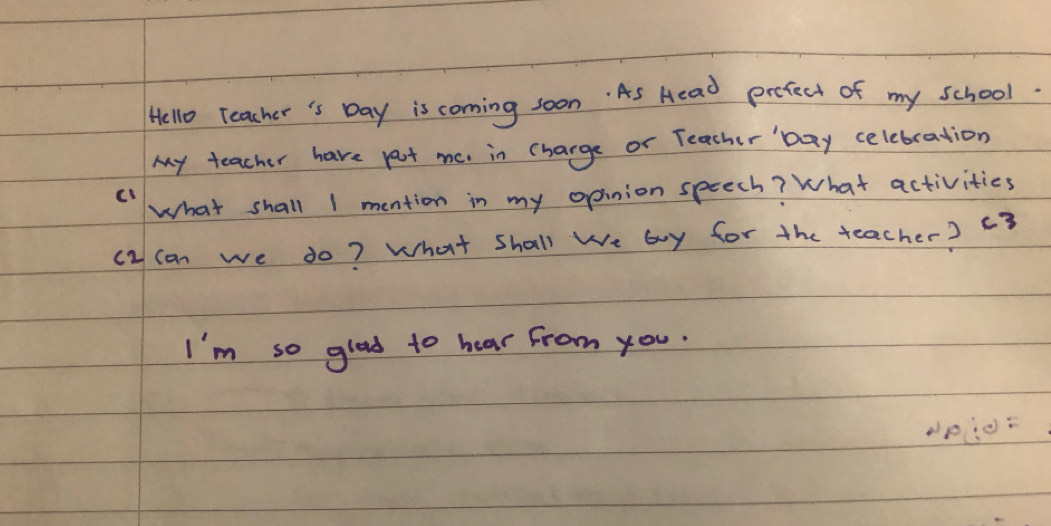 Hello Teacher 's Day is coming soon . As Head prefect of my school .
My teacher have put me. in charge of Teacher 'Day celebration
C1 What shall I mention in my opinion speech? What activities
C2 can we do? What shall we buy for the teacher? C3
I'm so glad to hear from you.